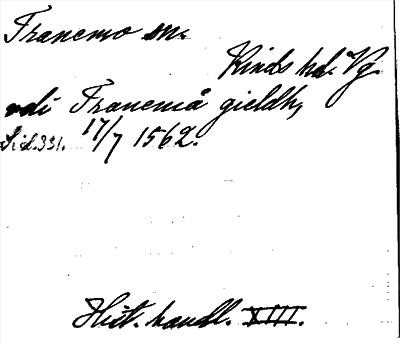 Tranemo sn.
Kinds hd. Vg.
vdi Tranemå gieldh,
Sid. 331. 17/7 1562.
Hist. handl. XIII.